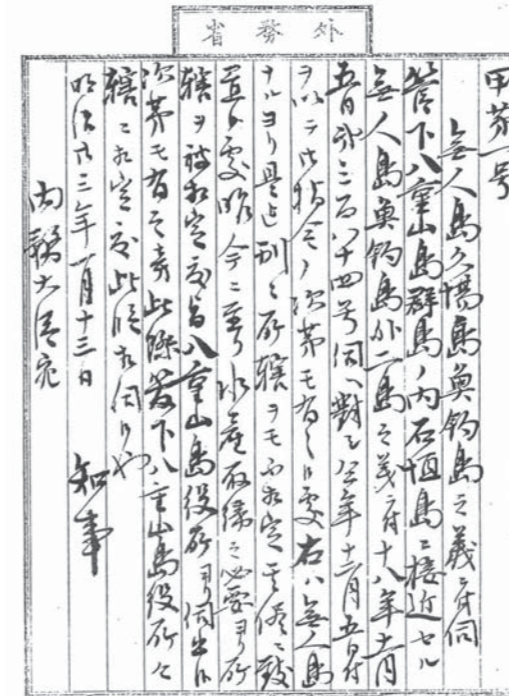 外務省
甲第一号
無人島久場島魚釣島之義ニ付伺
管下八重山島群島ノ内石垣島ニ接近セル
無人島魚釣島外二島之義ニ付十八年十一月
五日第三百八十四号伺ヘ對シ同年十二月五日付
ヲ以テ御指令ノ次第モ有之候處右ハ無人島
ナルヨリ是迄別ニ所轄ヲモ不相定其儘ニ致
置候處昨今ニ至リ水産取締之必要ヨリ所
轄ヲ被相定度旨八重山島役所ヨリ伺出候
次第モ有之旁此際管下八重山島役所々
轄ニ相定度此段相伺候也
明治廿三年一月十三日 知事
内務大臣宛